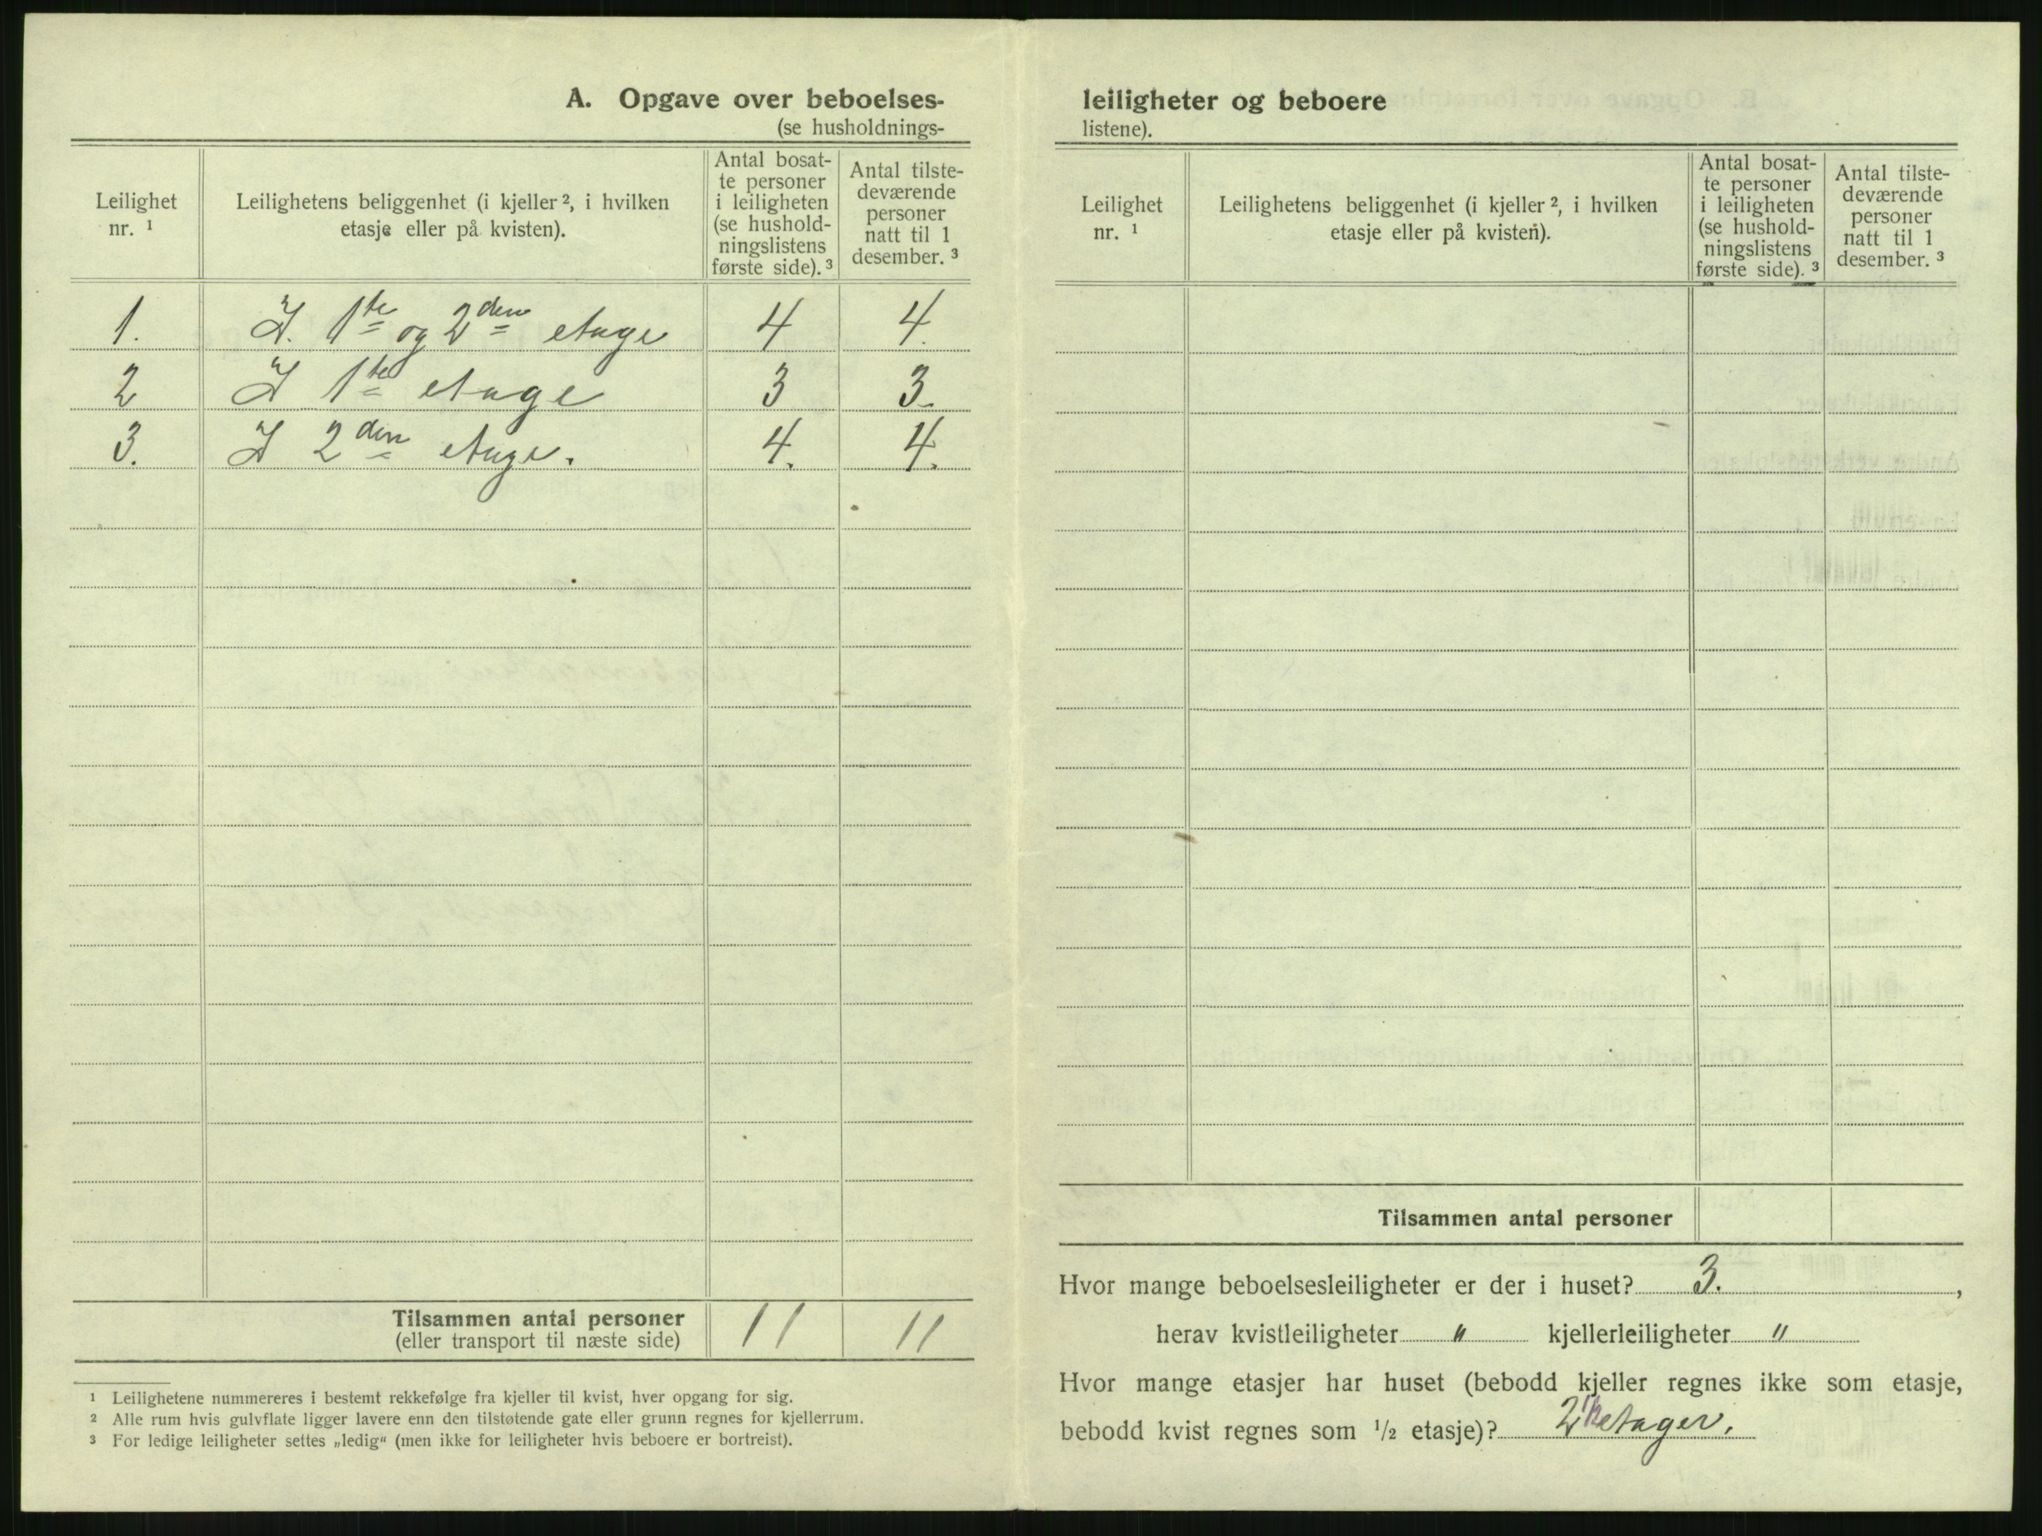 A. Opgave over beboelses-
(se husholdnings-
Leilighet nr. ¹
Leilighetens beliggenhet (i kjeller ², i hvilken
etasje eller på kvisten).
Antal bosat-
te personer
i leiligheten
(se hushold-
ningslistens
første side). ³
Antal tilste-
deværende
personer
natt til 1
desember. ³
1. I. 1te og 2den etage 4 4.
2 I 1te etage 3 3.
3. I 2den etage. 4. 4.
Tilsammen antal personer 11 11
(eller transport til næste side)
¹ Leilighetene nummereres i bestemt rekkefølge fra kjeller til kvist, hver opgang for sig.
² Alle rum hvis gulvflate ligger lavere enn den tilstøtende gate eller grunn regnes for kjellerrum.
³ For ledige leiligheter settes „ledig“ (men ikke for leiligheter hvis beboere er bortreist).
leiligheter og beboere
listene).
Leilighet nr. ¹
Leilighetens beliggenhet (i kjeller ², i hvilken
etasje eller på kvisten).
Antal bosat-
te personer
i leiligheten
(se hushold-
ningslistens
første side). ³
Antal tilste-
deværende
personer
natt til 1
desember. ³
Tilsammen antal personer
Hvor mange beboelsesleiligheter er der i huset? 3.,
herav kvistleiligheter " kjellerleiligheter "
Hvor mange etasjer har huset (bebodd kjeller regnes ikke som etasje,
bebodd kvist regnes som ½ etasje)? 2 etager.